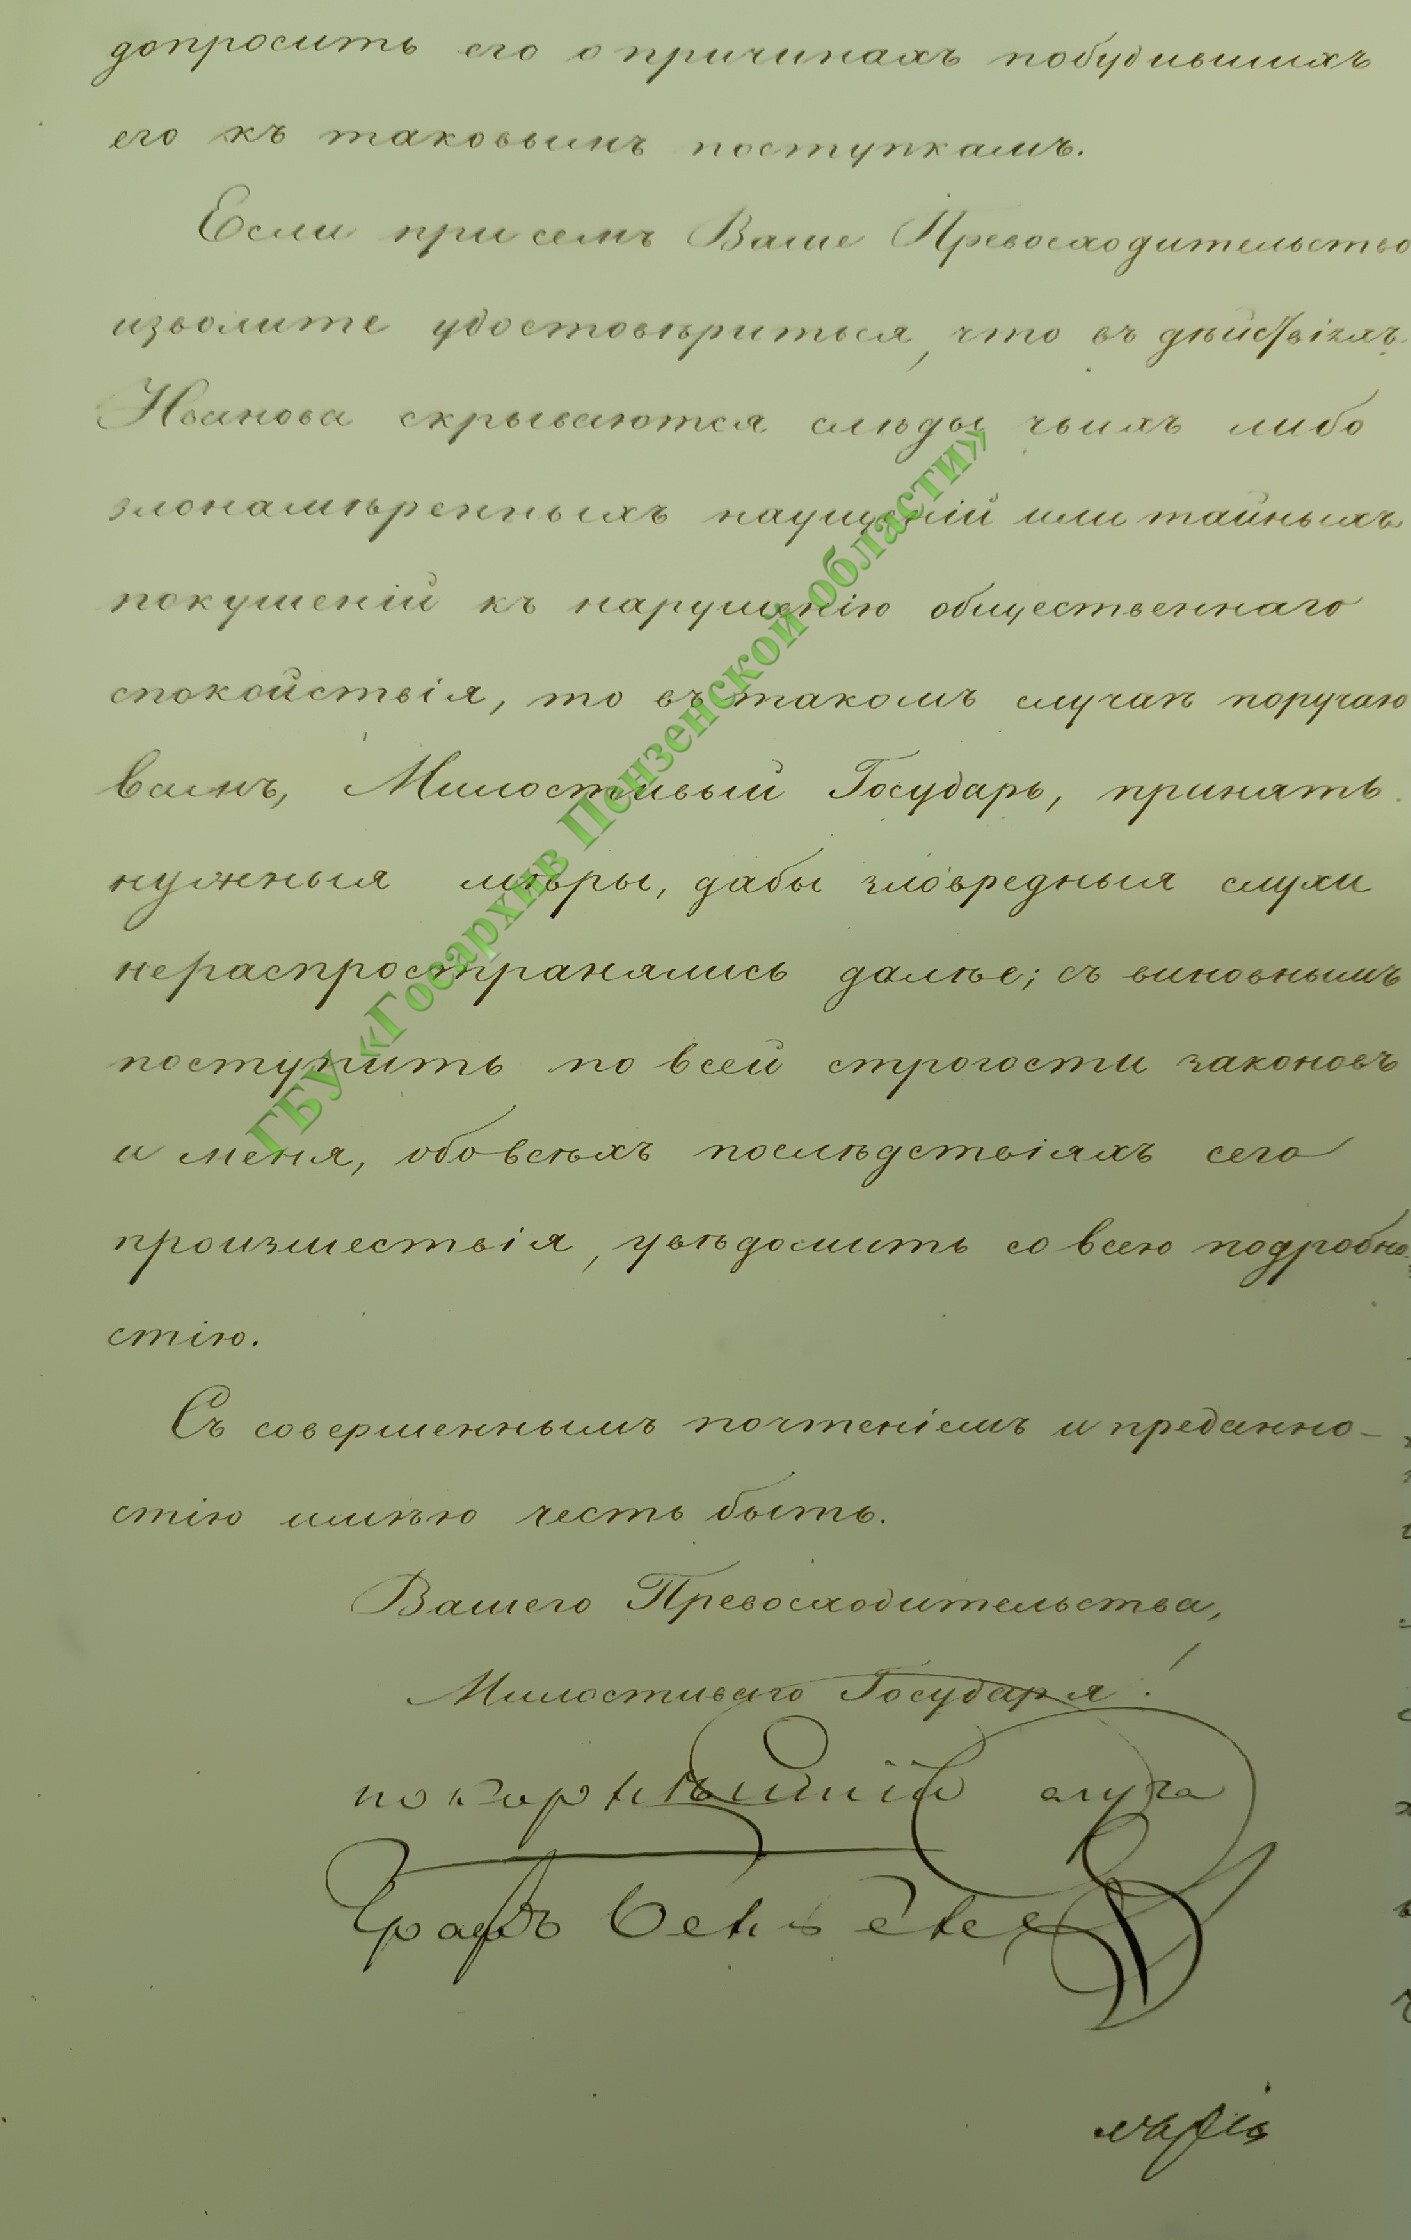 допросить его о причинахъ побудившихъ
его къ таковымъ поступкамъ.
Если при семъ Ваше Превосходительство
изволите удостовѣриться, что въ дѣйствіяхъ
Иванова скрываются слѣды чьихъ либо
злонамѣренныхъ наущеній или тайныхъ
покушеній къ нарушенію общественнаго
спокойствія, то въ такомъ случаѣ поручаю
вамъ, Милостивый Государь, принять
нужныя мѣры, дабы зловредныя слухи
нераспространялись далѣе; съ виновнымъ
поступить по всей строгости законовъ
и меня, обо всѣхъ послѣдствіяхъ сего
произшествія, увѣдомить со всею подробно-
стію.
Съ совершеннымъ почтеніемъ и преданно-
стію имѣю честь быть.
Вашего Превосходительства,
Милостиваго Государя!
покорнѣйшій слуга
Графъ
ГБУ «Госархив Пензенской области»